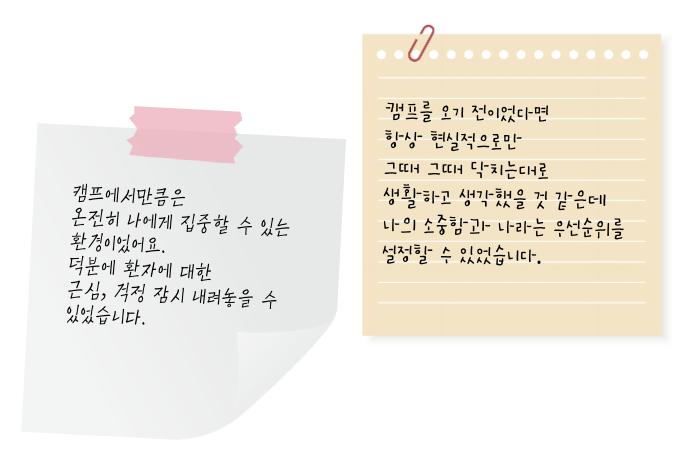 캠프에서만큼은
온전히 나에게 집중할 수 있는
환경이었어요.
덕분에 환자에 대한
근심, 걱정 잠시 내려놓을 수
있었습니다.
캠프를 오기 전이었다면
항상 현실적으로만
그때 그때 닥치는대로
생활하고 생각했을 것 같은데
나의 소중함과 나라는 우선순위를
설정할 수 있었습니다.